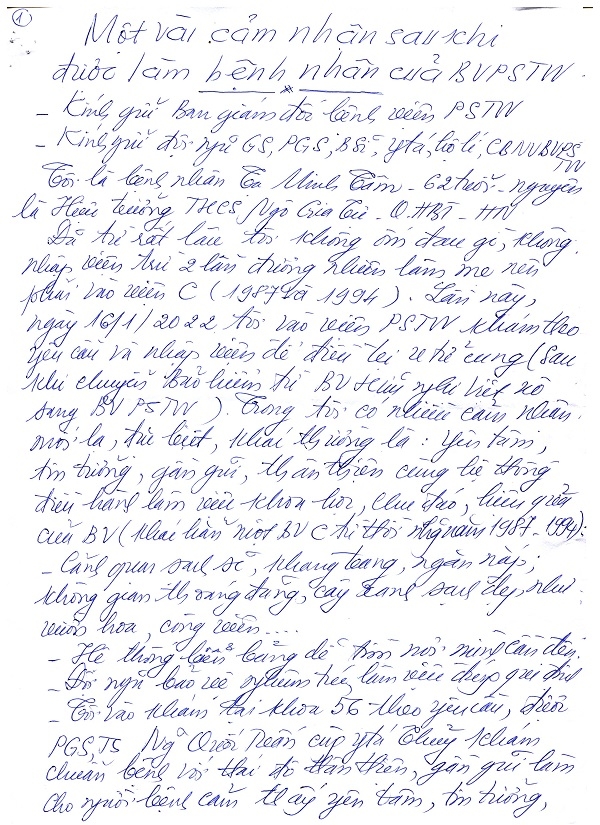 ①
Một vài cảm nhận sau khi
được làm bệnh nhân của BVPSTW
- Kính gửi Ban giám đốc bệnh viện PSTW
- Kính gửi đội ngũ GS, PGS, BSĩ, y tá, hộ lí, CBNVBVPSTW
Tôi là bệnh nhân Tạ Minh Tâm - 62 tuổi - nguyên
là Hiệu trưởng THCS Ngô Gia Tự - Q. HBT - HN
Đã từ rất lâu tôi không ốm đau gì, không
nhập viện trừ 2 lần đương nhiên làm mẹ nên
phải vào viện C (1987 và 1994). Lần này,
ngày 16/1/2022 tôi vào viện PSTW khám theo
yêu cầu và nhập viện để điều trị u xơ tử cung (sau
khi chuyển Bảo hiểm từ BV Hữu nghị Việt Xô
sang BVPSTW). Trong tôi có nhiều cảm nhận
mới lạ, đặc biệt, khác thường là: yên tâm,
tin tưởng, gần gũi, thân thiện cùng hệ thống
điều hành làm việc khoa học, chu đáo, hiệu quả
của BV (khác hẳn với BV C từ thời những năm 1987-1994):
- Cảnh quan sạch sẽ, khang trang, ngăn nắp;
không gian thoáng đãng, cây xanh sạch đẹp như
vườn hoa, công viên....
- Hệ thống biển bảng dễ tìm nơi mình cần đến.
- Đội ngũ bảo vệ nghiêm túc, làm việc đúng qui định
- Tôi vào khám tại khoa 56 theo yêu cầu, được
PGS, TS Ngô Quốc Tuấn cùng y tá Thủy khám
chuẩn bệnh với thái độ thân thiện, gần gũi làm
cho người bệnh cảm thấy yên tâm, tin tưởng,